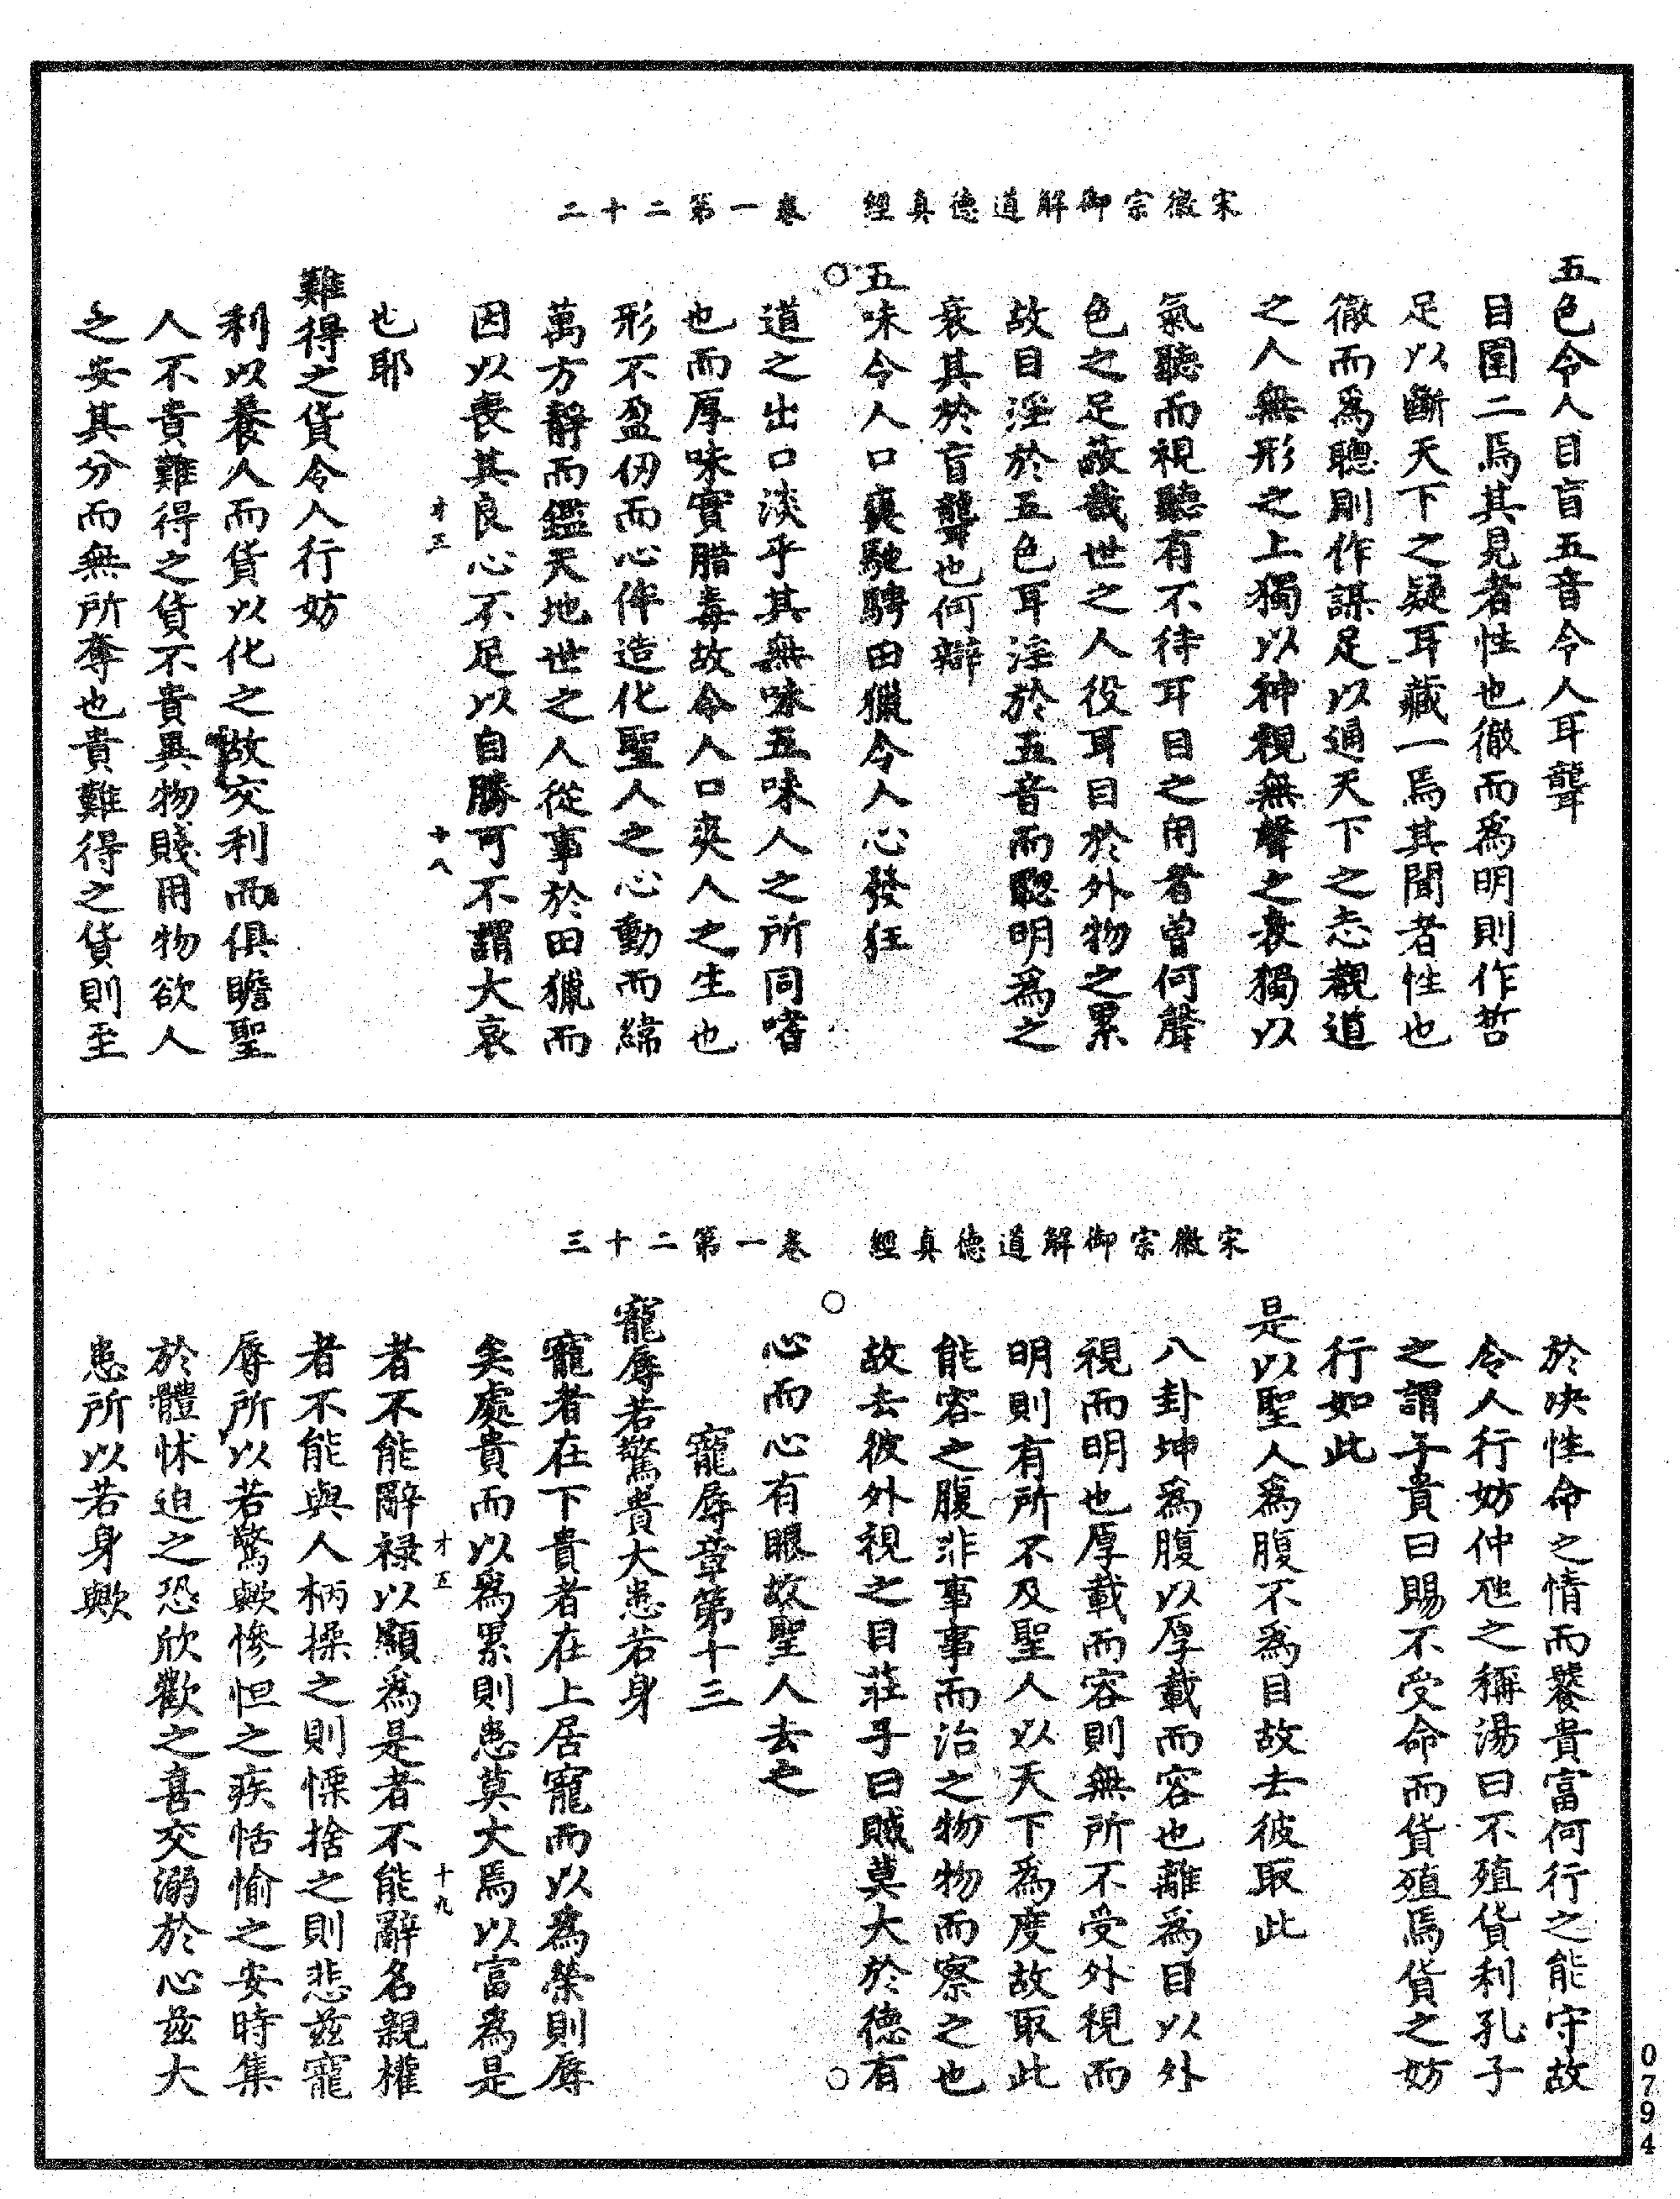 宋徽宗御解道德真經　卷一第二十二
五色令人目盲五音令人耳聾
目圍二焉其見者性也徹而爲明則作哲
足以斷天下之疑耳藏一焉其聞者性也
徹而爲聰則作謀足以通天下之志觀道
之人無形之上獨以神視無聲之表獨以
氣聽而視聽有不待耳目之用者曾何聲
色之足蔽哉世之人役耳目於外物之累
故目淫於五色耳淫於五音而聰明爲之
衰其於盲聾也何辯
五味令人口爽馳騁田獵令人心發狂
道之出口淡乎其無味五味人之所同嗜
也而厚味實腊毒故令人口爽人之生也
形不盈仞而心侔造化聖人之心動而緯
萬方靜而鑑天地世之人從事於田獵而
因以喪其良心不足以自勝可不謂大哀
才三　十八
也耶
難得之貨令人行妨
利以養人而貨以化之故交利而俱贍聖
人不貴難得之貨不貴異物賤用物欲人
之安其分而無所奪也貴難得之貨則至
宋徽宗御解道德真經　卷一第二十三
於决性命之情而饕貴富何行之能守故
令人行妨仲虺之稱湯曰不殖貨利孔子
之謂子貢曰賜不受命而貨殖焉貨之妨
行如此
是以聖人爲腹不爲目故去彼取此
八卦坤爲腹以厚載而容也離爲目以外
視而明也厚載而容則無所不受外視而
明則有所不及聖人以天下爲度故取此
能容之腹非事事而治之物物而察之也
故去彼外視之目莊子曰賊莫大於德有
心而心有眼故聖人去之
寵辱章第十三
寵辱若驚貴大患若身
寵者在下貴者在上居寵而以爲榮則辱
矣處貴而以爲累則患莫大焉以富爲是
才五　十九
者不能辭祿以顯爲是者不能辭名親權
者不能與人柄操之則慄捨之則悲茲寵
辱所以若驚歟慘怛之疾恬愉之安時集
於體怵迫之恐欣歡之喜交溺於心茲大
患所以若身歟
0794